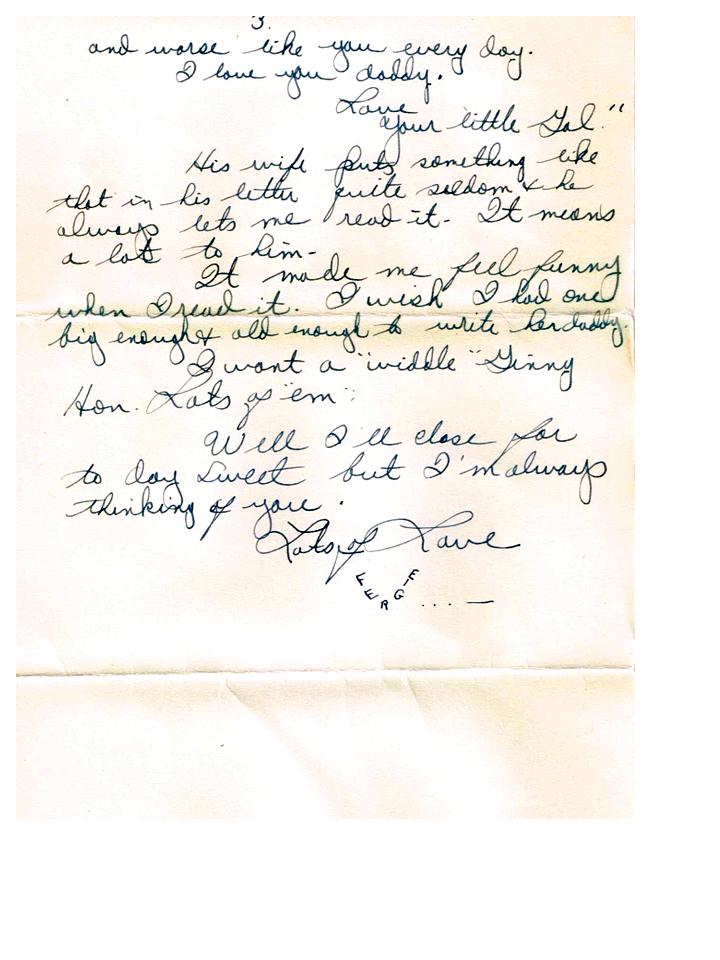 3.
and worse like you every day.
I love you daddy.
Love
Your little Gal."
His wife puts something like
that in his letter quite seldom & he
always lets me read it. It means
a lot to him-
It made me feel funny
when I read it. I wish I had one
big enough & old enough to write her daddy.
I want a "widdle" Ginny
Hon. Lots of "em".
Well I'll close for
to day Sweet but I'm always
thinking of you.
Lots of Love
FERGIE ... —